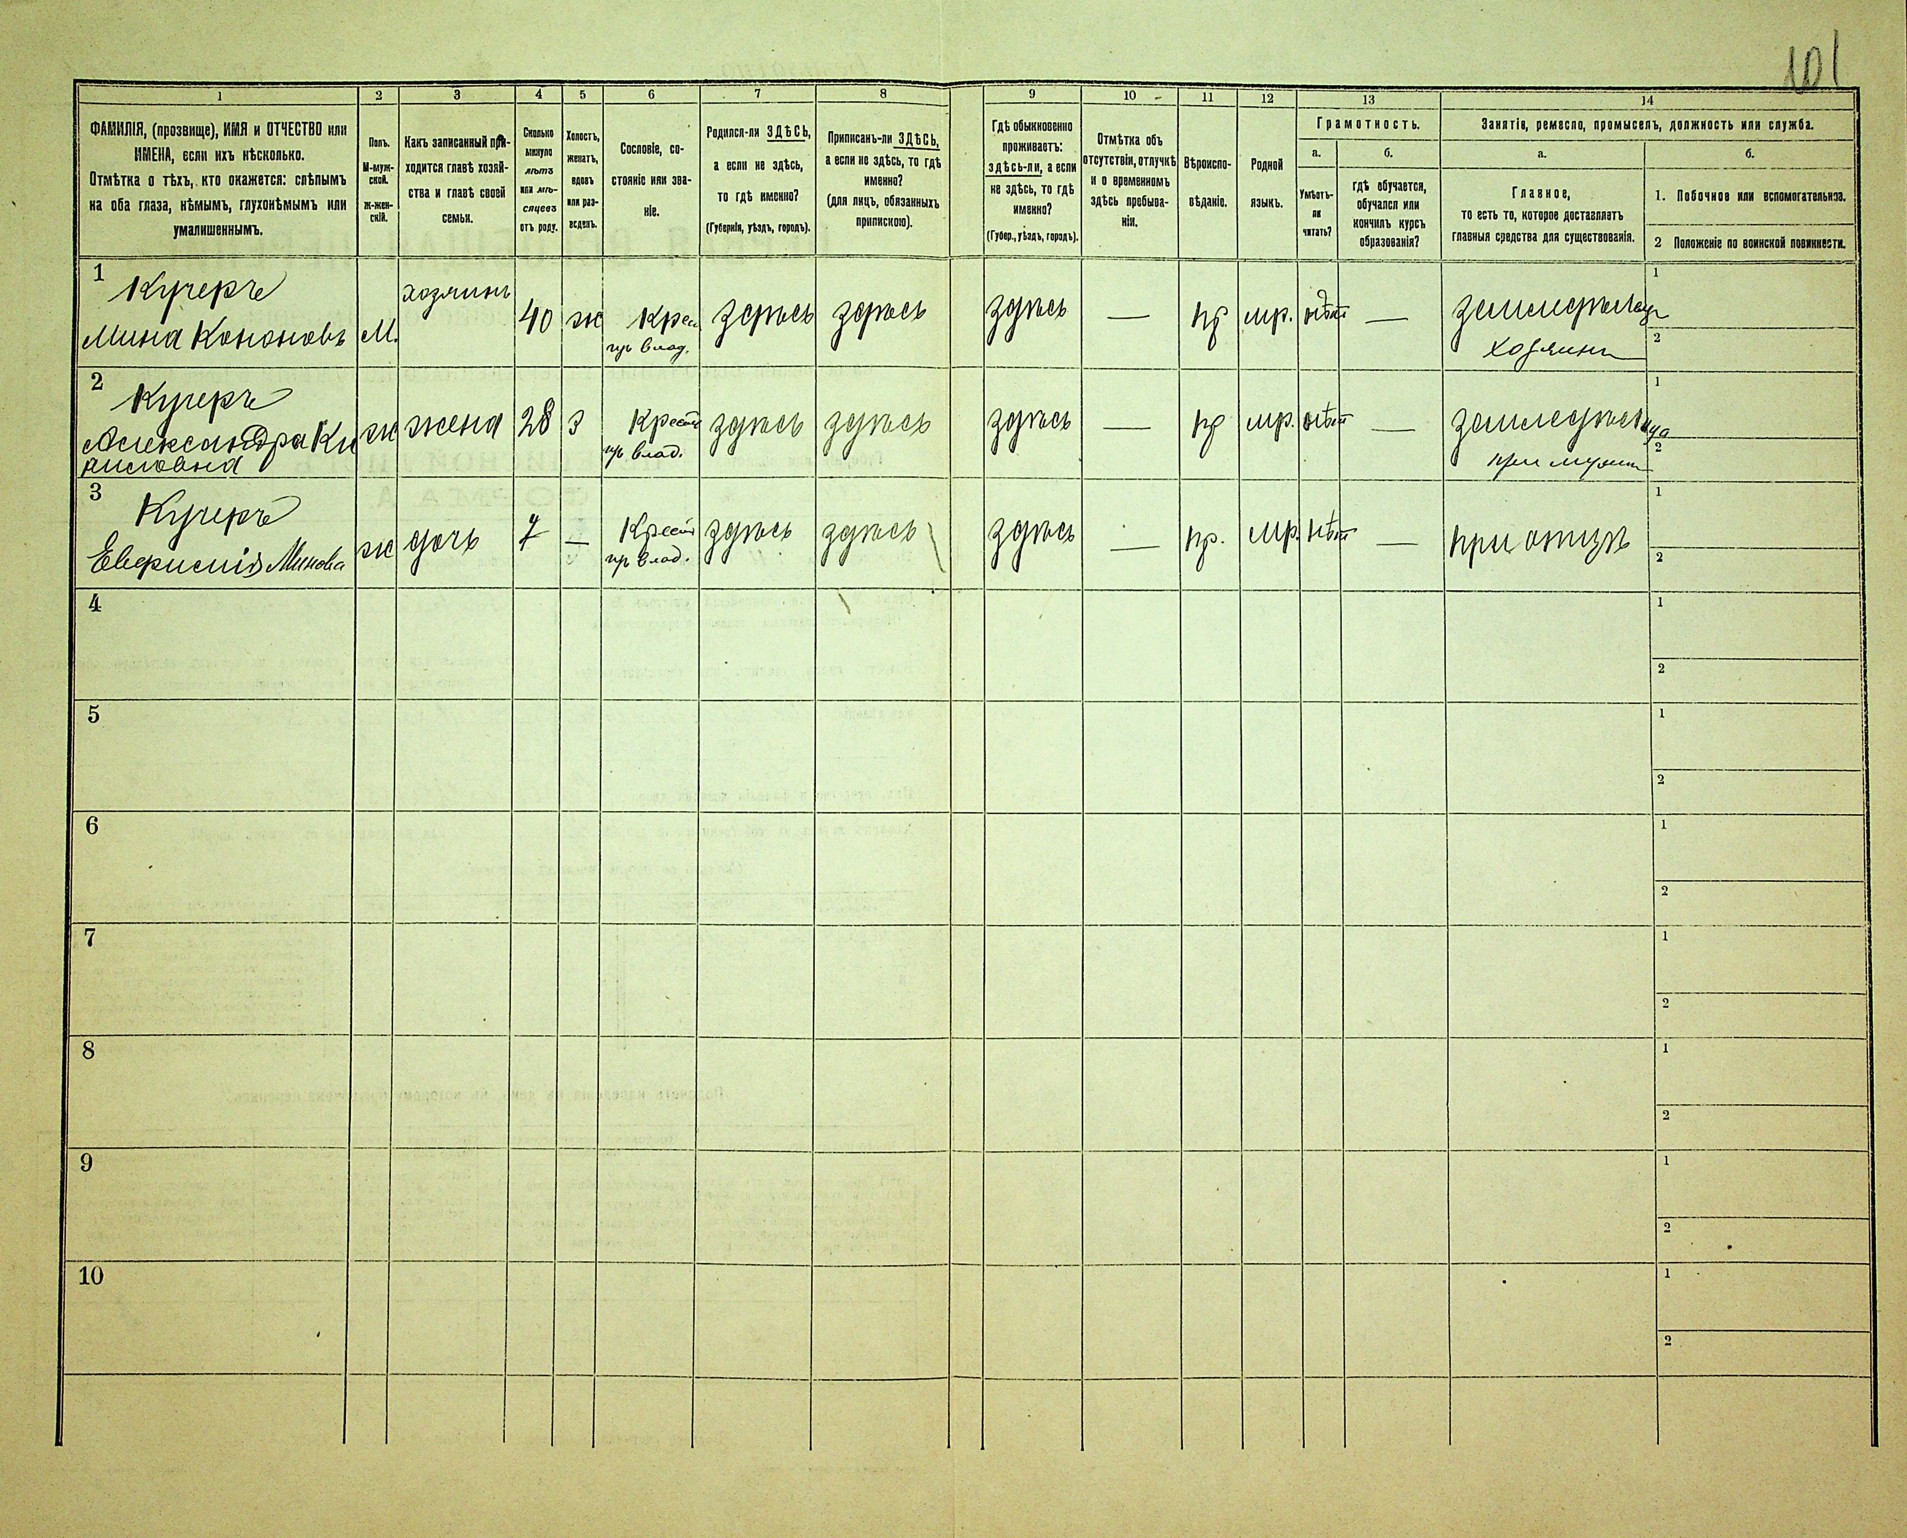 101
1 2 3 4 5 6 7 8 9 10 11 12 13 14
ФАМИЛІЯ, (прозвище), ИМЯ и ОТЧЕСТВО или
ИМЕНА, если ихъ нѣсколько.
Отмѣтка о тѣхъ, кто окажется: слѣпымъ
на оба глаза, нѣмымъ, глухонѣмымъ или
умалишеннымъ.
Полъ.
М-муж-
ской.
Ж-жен-
скій.
Какъ записанный при-
ходится главѣ хозяй-
ства и главѣ своей
семьи.
Сколько
минуло
лѣтъ
или мѣ-
сяцевъ
отъ роду.
Холостъ,
женатъ,
вдовъ
или раз-
веденъ.
Сословіе, со-
стояніе или зва-
ніе.
Родился-ли ЗДѢСЬ,
а если не здѣсь,
то гдѣ именно?
(Губернія, уѣздъ, городъ).
Приписанъ-ли ЗДѢСЬ,
а если не здѣсь, то гдѣ
именно?
(для лицъ, обязанныхъ
припискою).
Гдѣ обыкновенно
проживаетъ:
здѣсь-ли, а если
не здѣсь, то гдѣ
именно?
(Губер., уѣздъ, городъ).
Отмѣтка объ
отсутствіи, отлучкѣ
и о временномъ
здѣсь пребыва-
ніи.
Вѣроиспо-
вѣданіе.
Родной
языкъ.
Грамотность.
а.
Умѣетъ-
ли
читать?
б.
гдѣ обучается,
обучался или
кончилъ курсъ
образованія?
Занятіе, ремесло, промыселъ, должность или служба.
а.
Главное,
то есть то, которое доставляетъ
главныя средства для существованія.
б.
1. Побочное или вспомогательное.
2 Положеніе по воинской повинности.
1 Кучеръ хозяинъ 1
Мина Кононовъ М. 40 ж Крест здѣсь здѣсь здѣсь — пр мр. нѣт — земледѣлец
пр влад. хозяинъ 2
2 Кучеръ 1
Александра Ки ж жена 28 з Крест здѣсь здѣсь здѣсь — пр мр. нѣт — земледѣлица
риловна пр влад. при мужѣ 2
3 Кучеръ 1
Евфросинія Минова ж дочь 7 — Крест здѣсь здѣсь здѣсь — пр. мр. нѣт — при отцѣ
пр влад. 2
4 1
2
5 1
2
6 1
2
7 1
2
8 1
2
9 1
2
10 1
2